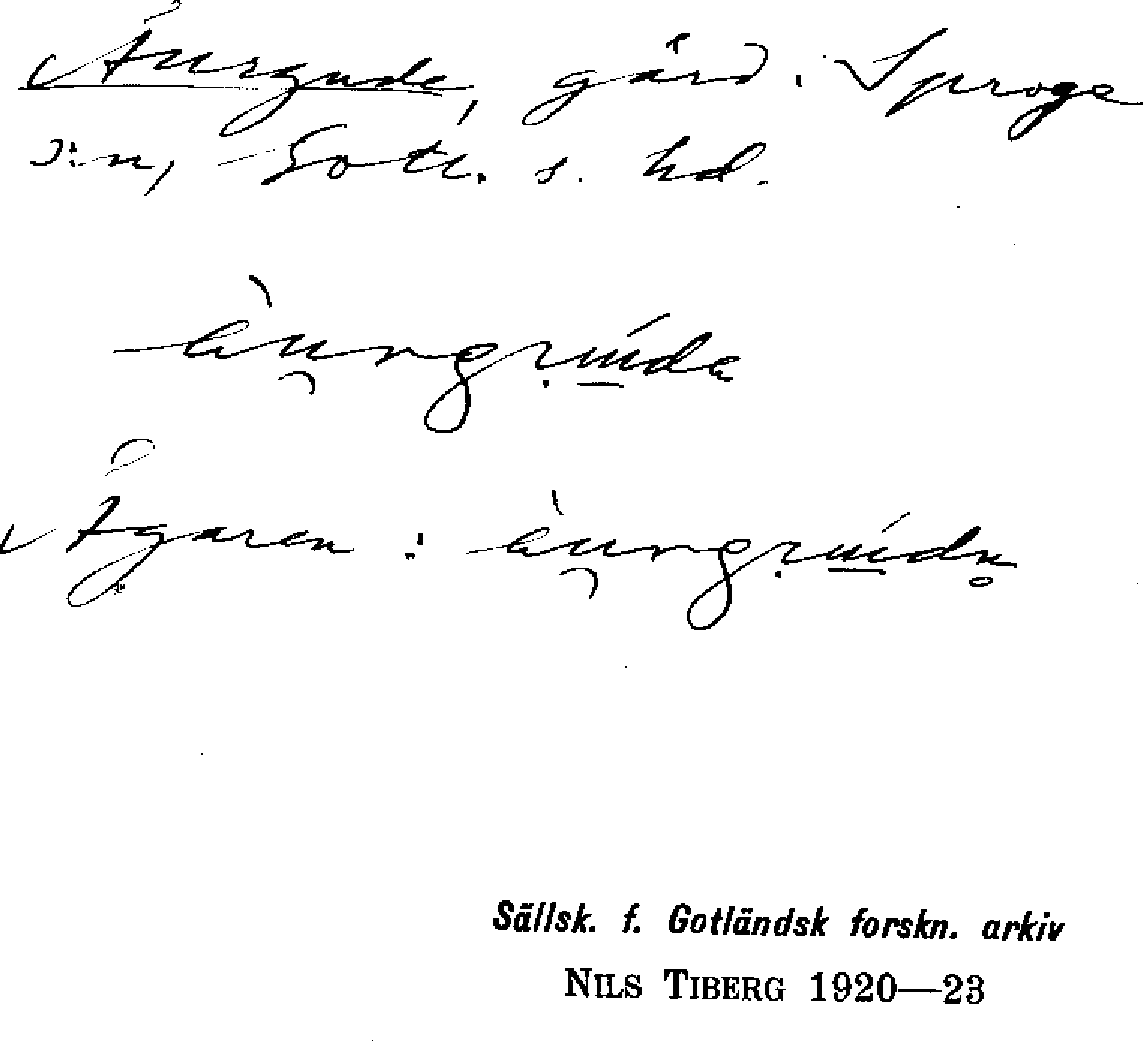 Aurgnde, gård. Sproge
s:n, Gotl. s. hd.
Ägaren :
Sällsk. f. Gotländsk forskn. arkiv
NILS TIBERG 1920—23